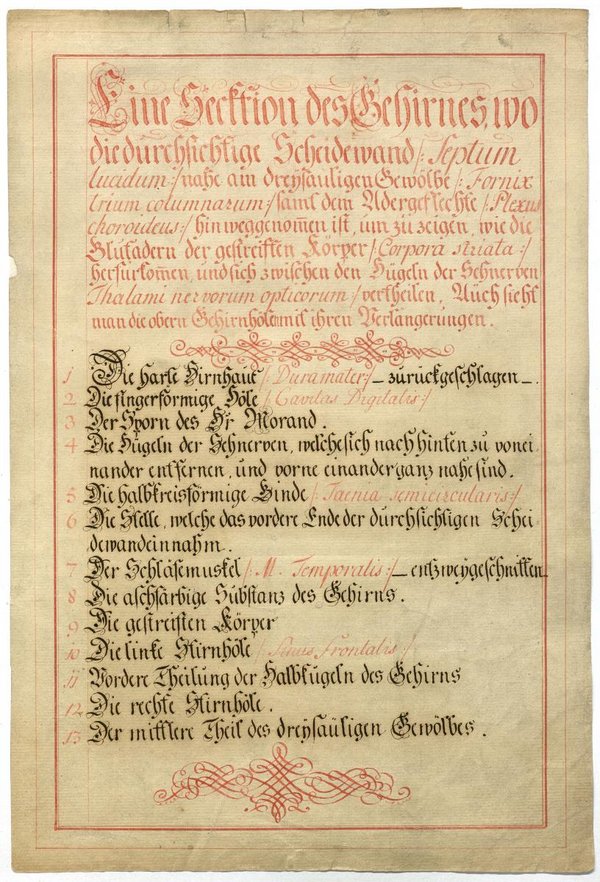 Eine Secktion des Gehirnes, wo
die durchsichtige Scheidewand /: Septum
lucidum :/ nahe am dreysäuligen Gewölbe /: Fornix
trium columnarum :/ samt dem Adergeflechte /: Plexus
choroideus :/ hinweggenom̄en ist, um zu zeigen, wie die
Blutadern der gestreiften Körper /: Corpora striata :/
herfürkom̄en, und sich zwischen den Hügeln der Sehnerven
Thalami nervorum opticorum :/ vertheilen, Auch sieht
man die obern Gehirnhölen mit ihren Verlängerungen.
1 Die harte Hirnhaut /: Dura mater :/ – zurückgeschlagen –.
2 Die fingerförmige Höle /: Cavitas Digitalis :/
3 Der Sporn des Hr Morand.
4 Die Hügeln der Sehnerven, welche sich nach hinten zu vonei-
nander entfernen, und vorne einander ganz nahe sind.
5 Die halbkreisförmige Binde /: Taenia semicircularis :/
6 Die Stelle, welche das vordere Ende der durchsichtigen Schei-
dewand einnahm.
7 Der Schläfemuskel /: M. Temporalis :/ – entzweygeschnitten
8 Die aschfärbige Substanz des Gehirns.
9 Die gestreiften Körper
10 Die linke Stirnhöle /: Sinus Frontalis :/
11 Vordere Theilung der Halbkugeln des Gehirns
12 Die rechte Stirnhöle.
13 Der mittlere Theil des dreysäuligen Gewölbes.